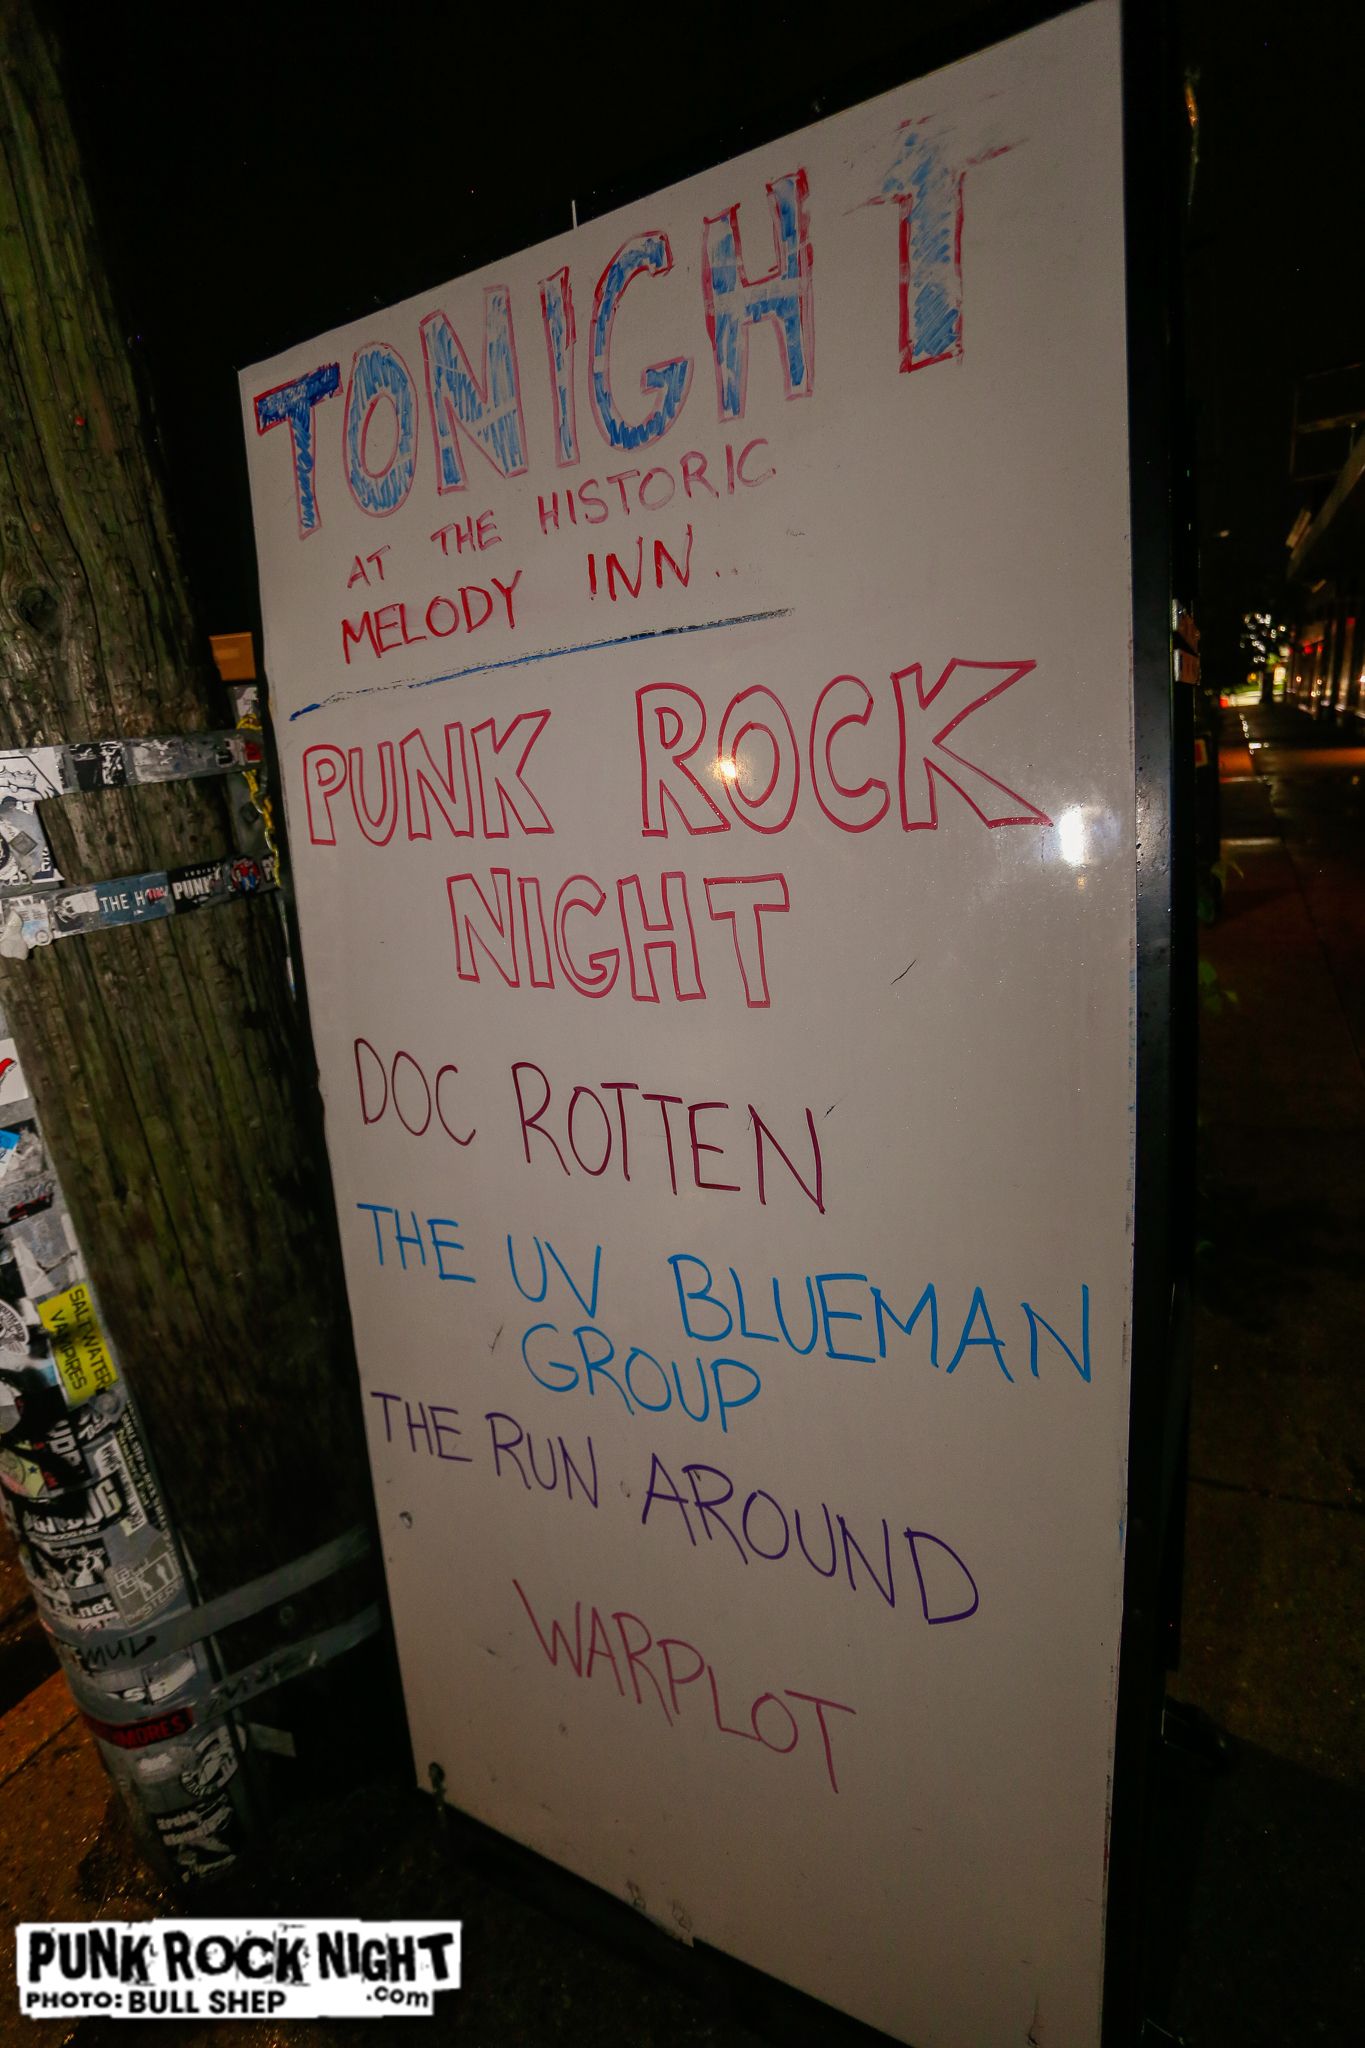 TONIGHT
AT THE HISTORIC
MELODY INN..
PUNK ROCK
NIGHT
DOC ROTTEN
THE UV BLUEMAN
GROUP
THE RUN AROUND
WARPLOT
THE
PUNK
SALTWATER
VAMPIRES
.net
MUL
PUNK ROCK NIGHT
.com
PHOTO: BULL SHEP